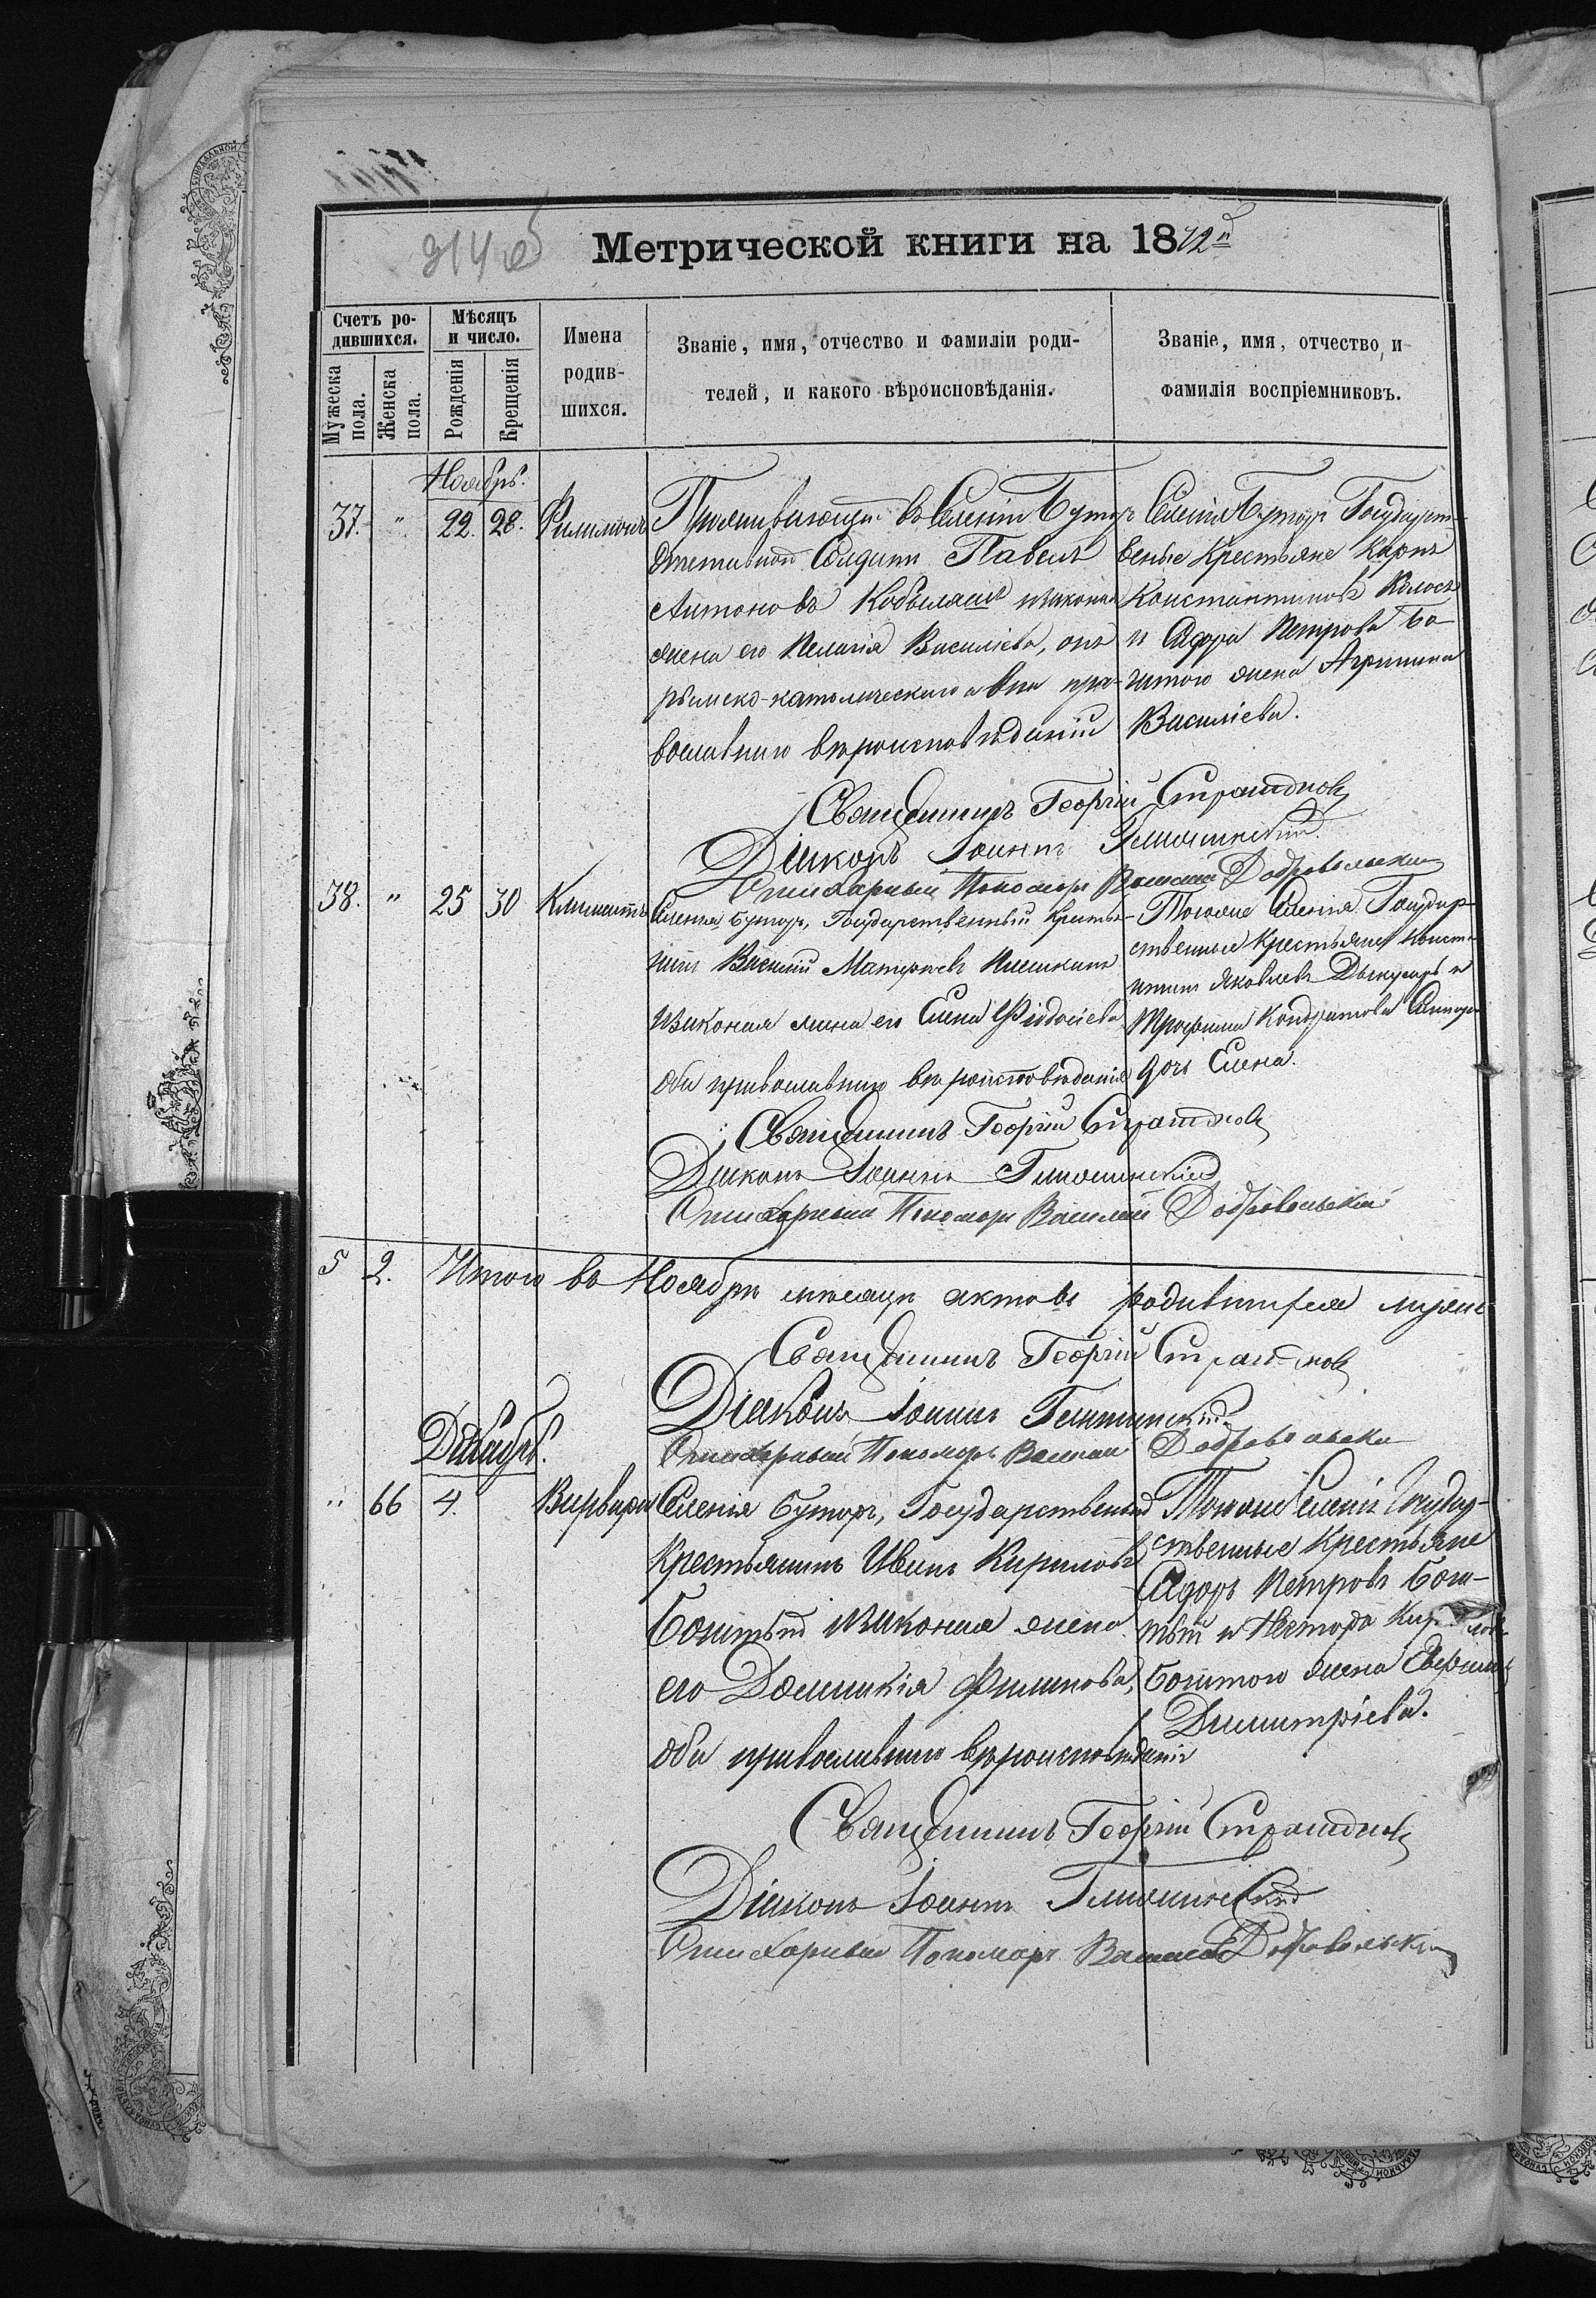 314 об
Метрической книги на 1872й
Счетъ ро-
дившихся.
Мужеска
пола.
Женска
пола.
Мѣсяцъ
и число.
Рожденія
Крещенія
Имена
родив-
шихся.
Званіе, имя, отчество и фамиліи роди-
телей, и какого вѣроисповѣданія.
Званіе, имя, отчество и
фамилія воспріемниковъ.
Ноябрь.
37. " 22. 28. Филимонъ
Проживающій въ Селеніи Буторъ
Солдатъ Павелъ
Антоновъ законная
жена его Пелагія Василіева, онъ
римско-католическаго а она пра-
вославнаго вѣроисповѣданій
Селенія Буторъ Государст-
венные Крестьяне Карпъ
Константиновъ
и Сидора Петрова Бо-
гатого жена Агрипина
Василіева.
Священникъ Георгій
Діаконъ Іоаннъ
Стихарный Пономарь Василій Добровольский
38. " 25 30 Климентъ
Селенія Буторъ, Государственный Крестья-
нинъ Василий
законная жена его Елена Феодосіева
оба православнаго вѣроисповѣданія
Тогоже Селенія Государ-
ственные Крестьяне Конста-
нтинъ Яковлевъ и
Трофима Кондратова
дочь Елена.
Священникъ Георгій
Діаконъ Іоаннъ
Стихарный Пономарь Василий Добровольский
5 2. Итого въ Ноябрѣ мѣсяцѣ актовъ родившихся
Священникъ Георгій
Діаконъ Іоаннъ
Стихарный Пономарь Василий Добровольски
Декабрь.
" 66 4. Варвара
Селенія Буторъ, Государственный
Крестьянинъ Иванъ Кириловъ
Богатый законная жена
его Домникія Филипова,
оба православнаго вѣроисповѣданія
Тогоже Селенія Государ-
ственные Крестьяне
Сидоръ Петровъ Бога-
тый и Нестора
Богатого жена
Димитріева.
Священникъ Георгій
Діаконъ Іоаннъ
Стихарный Пономарь Василий Добровольский